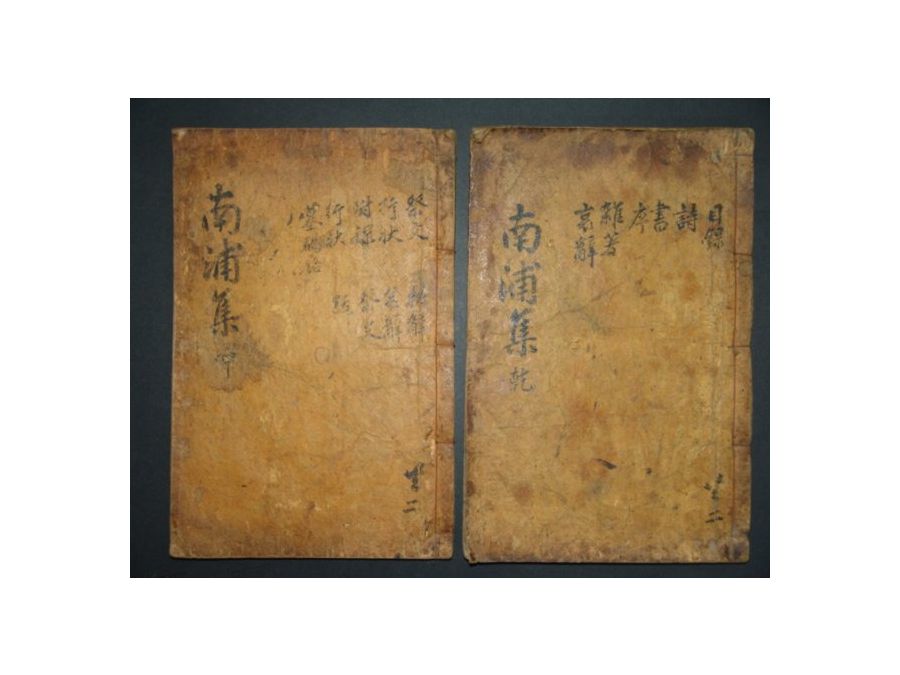 目錄
詩
書
序
雜著
哀辭
南浦集 乾
共二
祭文
行狀 哀辭
附錄 祭文
行狀
南浦集 坤
共二